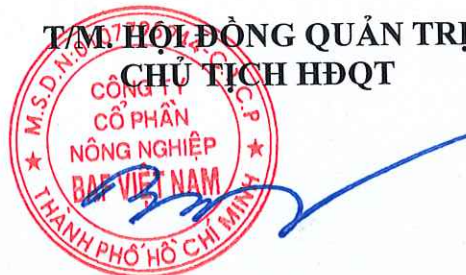 T/M. HỘI ĐỒNG QUẢN TRỊ
CHỦ TỊCH HĐQT
CÔNG TY
CỔ PHẦN
NÔNG NGHIỆP
BAF VIỆT NAM
THÀNH PHỐ HỒ CHÍ MINH